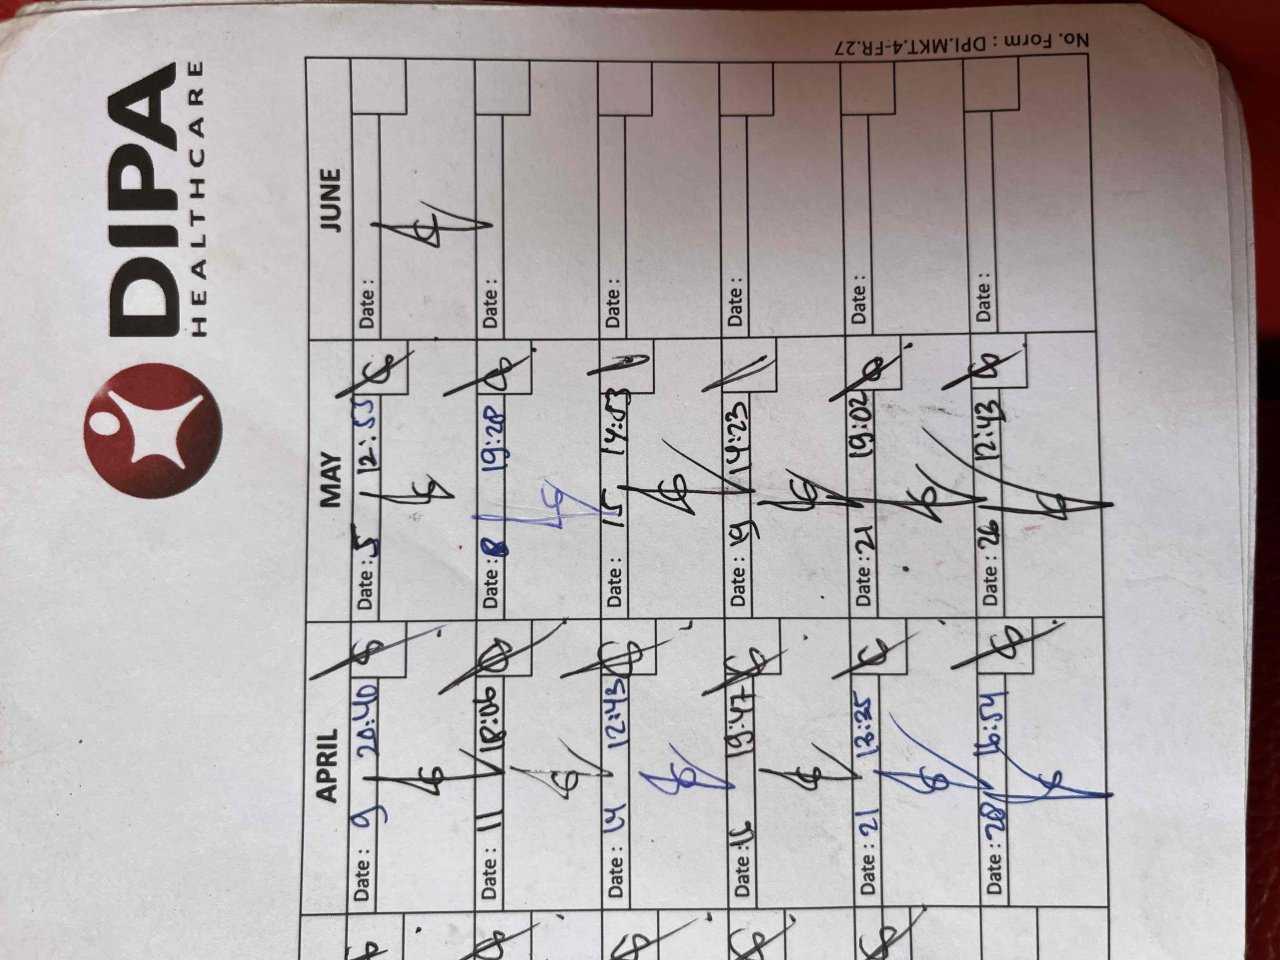 DIPA
HEALTHCARE
No. Form : DPI.MKT.4-FR.27
APRIL
MAY
JUNE
Date : 9 20:40
Date : 5 12:53
Date :
Date : 11 18:06
Date : 8 19:28
Date :
Date : 14 12:43
Date : 15 14:53
Date :
Date : 19:47
Date : 19 14:23
Date :
Date : 21 13:35
Date : 21 19:02
Date :
Date : 28 16:54
Date : 26 12:43
Date :